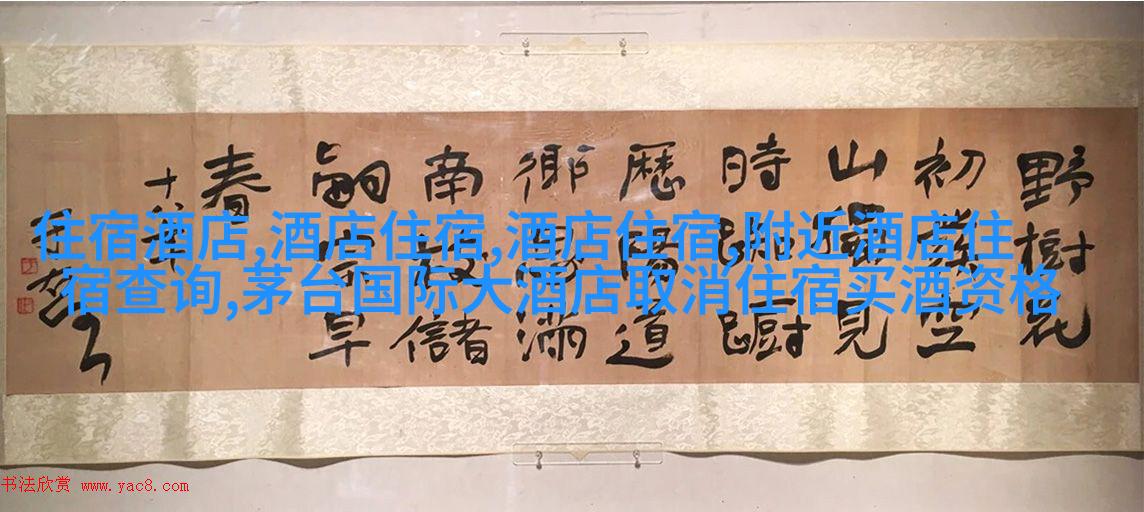 野樹花
初發空
山獨見
時踟躕
歷陽道
鄉思滿
南枝儲
嗣宗早
春
住宿酒店,酒店住宿,酒店住宿,附近酒店住
宿查询,茅台国际大酒店取消住宿买酒资格
书法欣赏 www.yac8.com